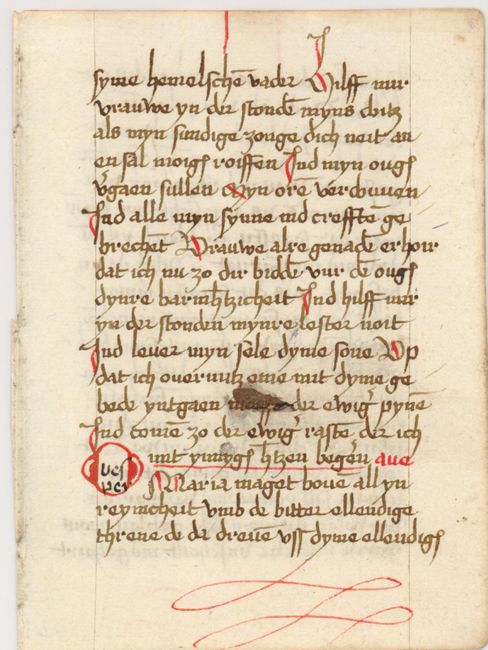 syme hemelschē vader Hilff mir
vrauwe yn der stondē myns doitz
als myn sundige zonge dich neit an
en sal moigē roiffen Ind myn ougē
vgaen sullen Myn orē verdouuen
Ind alle myn synne ind crefftē ge
brechēt Vrauwe alre genadē erhoir
dat ich nu zo dir biddē vur dē ougē
dynre barmhtzicheit Ind hilff mir
yn der stonden mynre lester noit
Ind lever myn sele dyme sone Up
dat ich overmitz eme mit dyme ge
bede yntgaen der ewigē pynē
Ind comē zo der ewigē rastē der ich
mit ynnygē htzen begerē ave
ves
per
Maria maget bovē all yn
reynicheit vmb de bitter ellendige
threne de da drevē vss dyme ellendigē